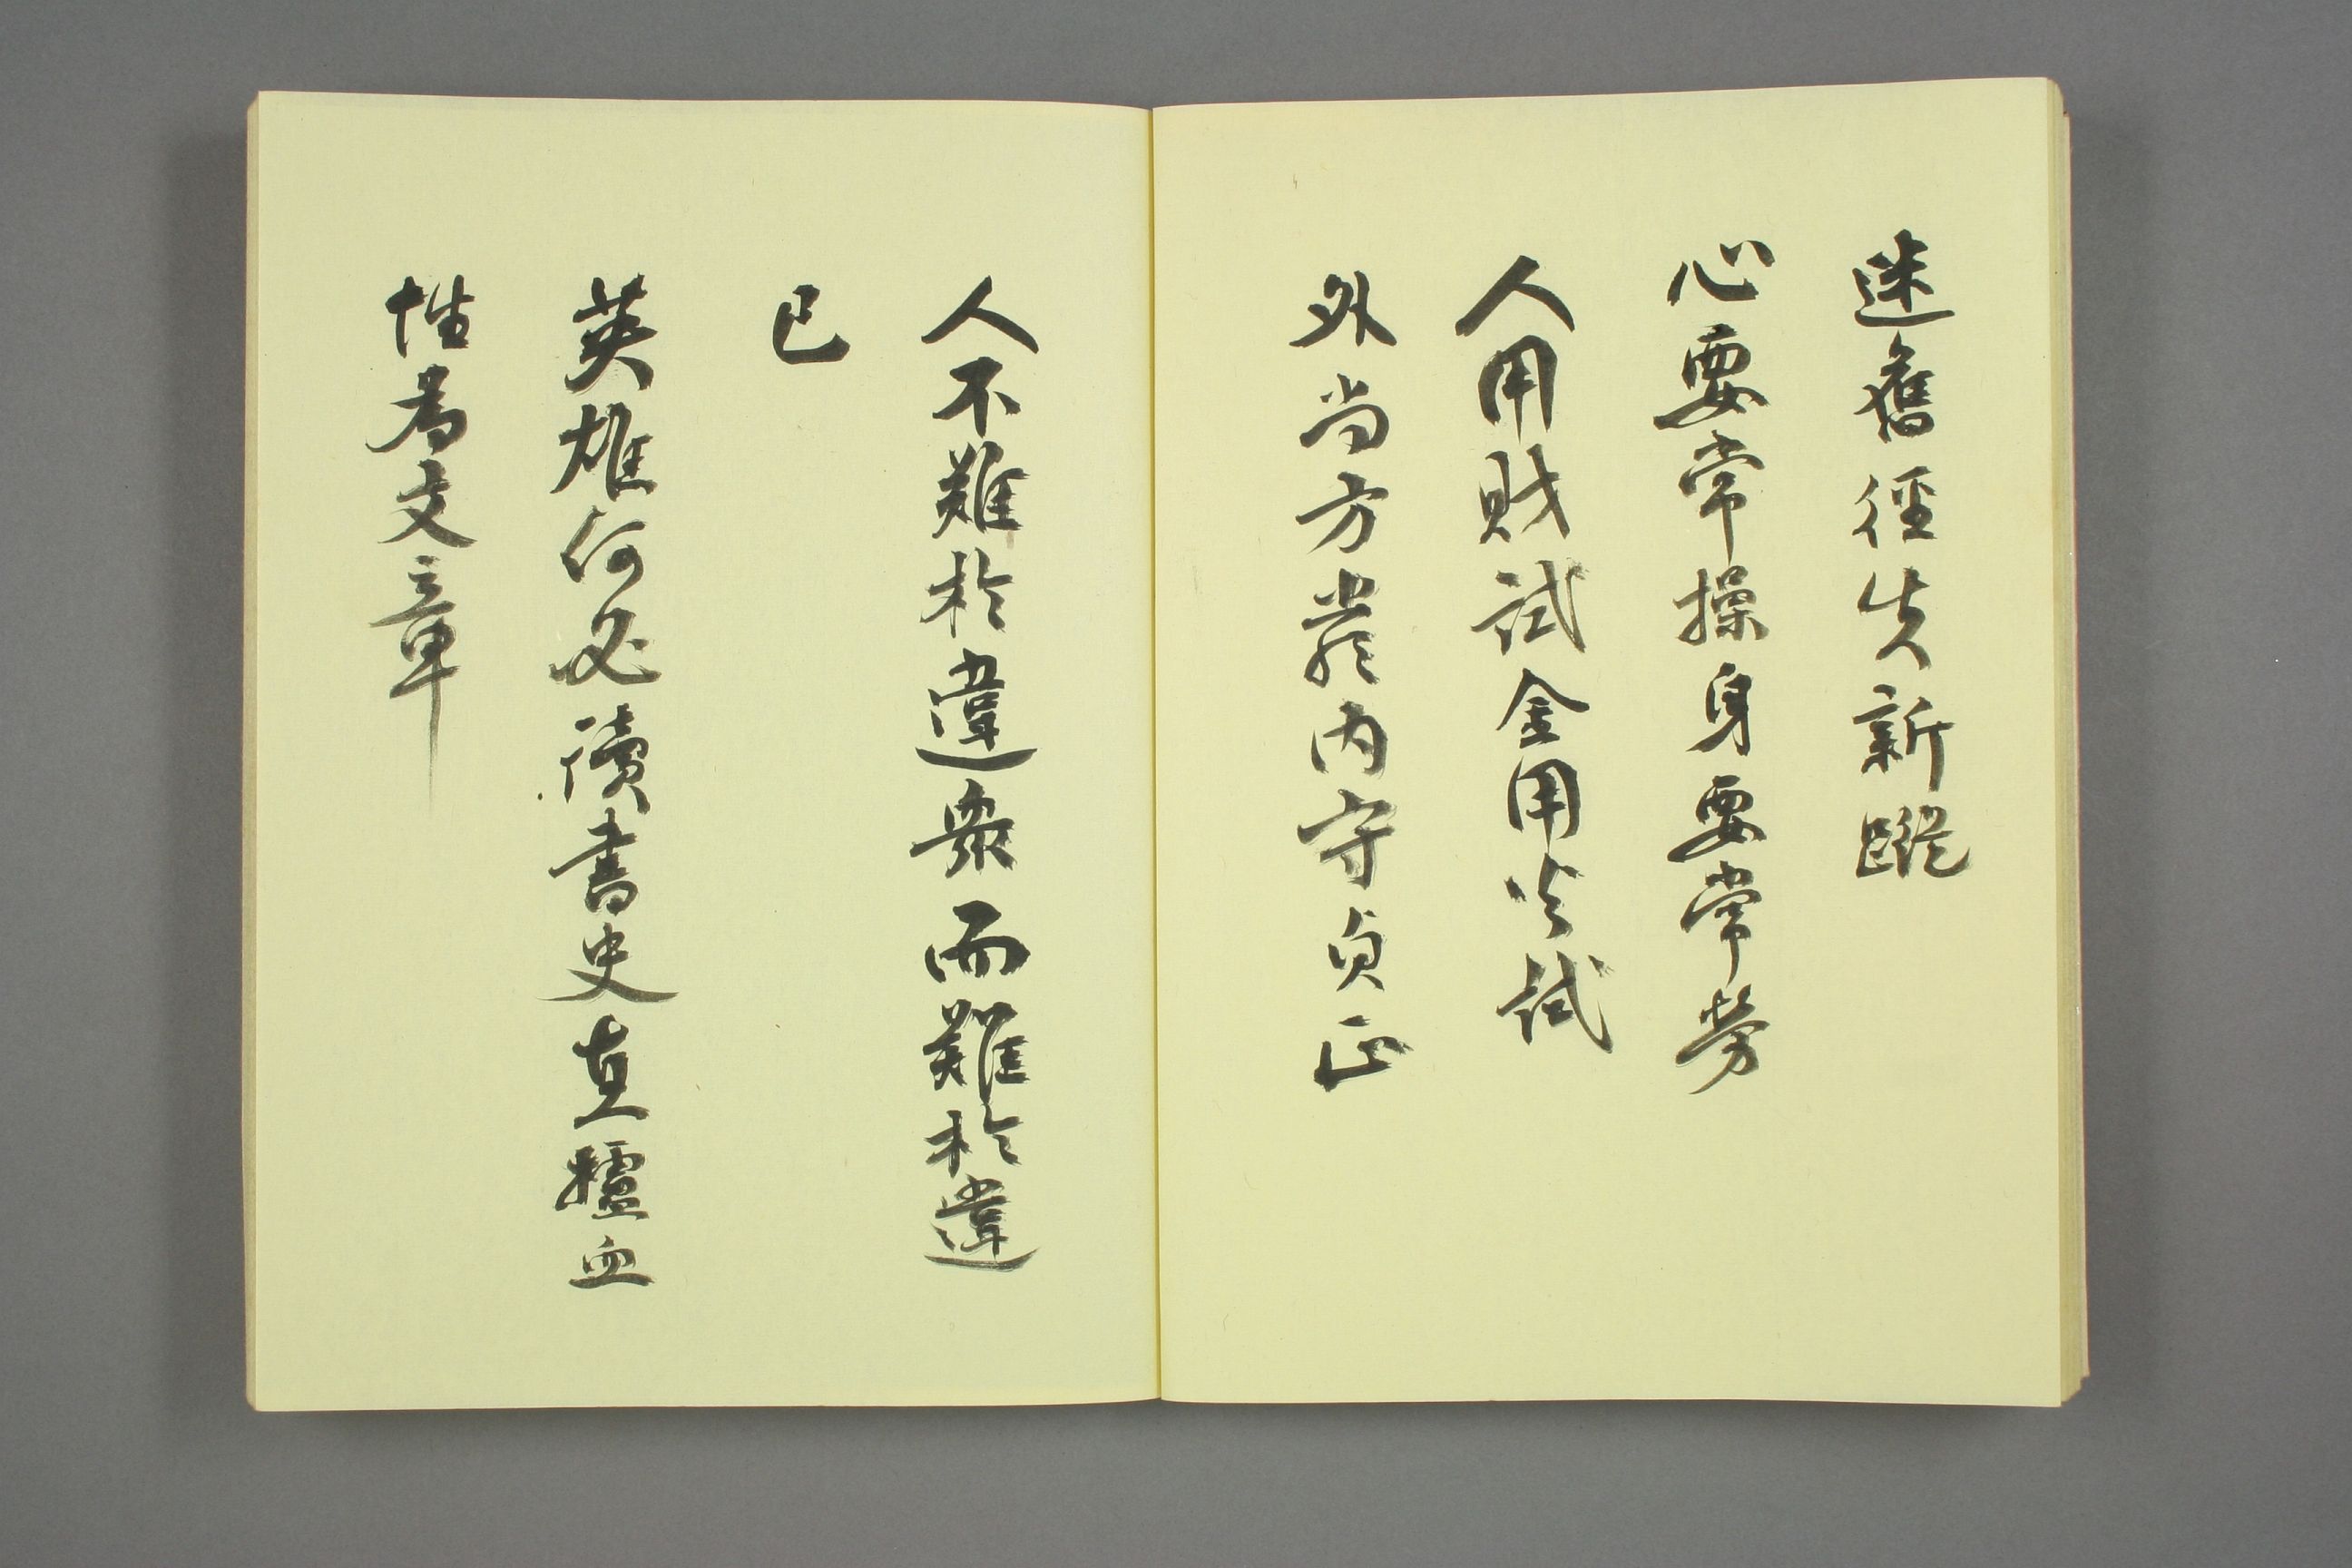 迷舊徑失新蹤
心要常操身要常勞
人用財試金用火試
外尚方嚴內守貞正
人不難於違眾而難於違
己
英雄何必讀書史直攄血
性為文章